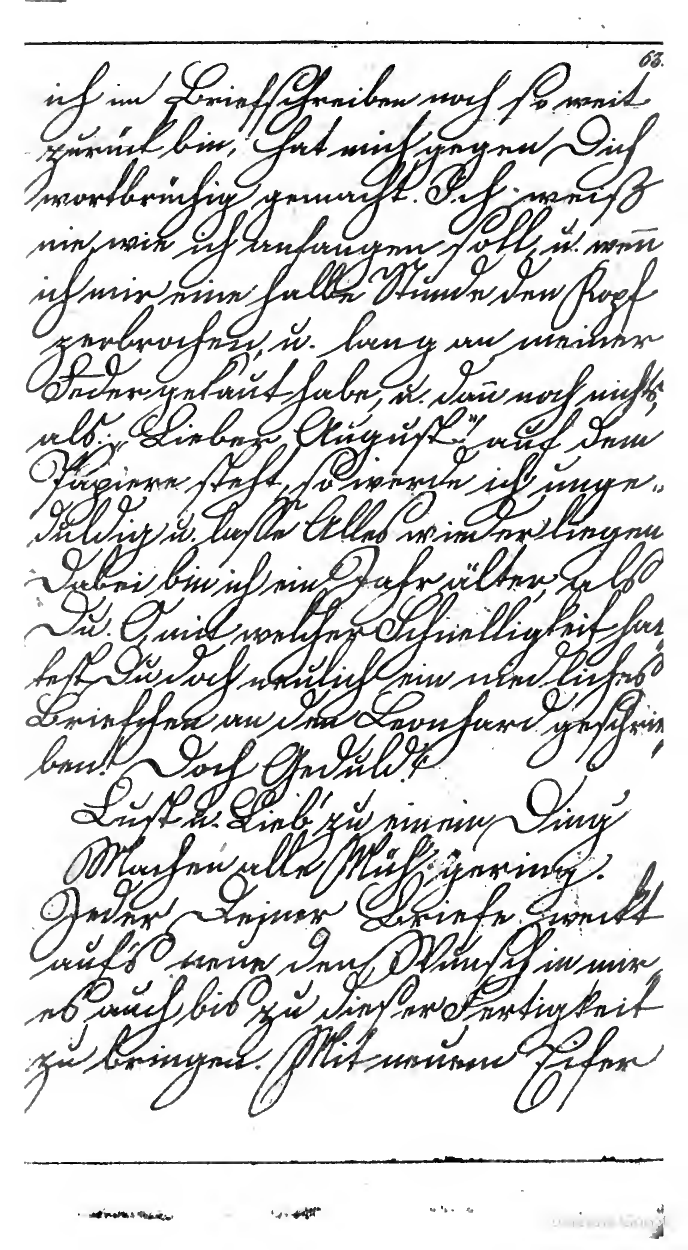 63.
ich im Briefschreiben noch so weit
zurück bin, hat mich gegen Dich
wortbrüchig gemacht. Ich weiß
nie, wie ich anfangen soll, u. wen̄
ich mir eine halbe Stunde den Kopf
zerbrochen, u. lang an meiner
Feder gekaut habe, u. dan̄ noch nichts,
als: „Lieber August!" auf dem
Papiere steht, so werde ich unge-
duldig u. lasse Alles wieder liegen
Dabei bin ich ein Jahr älter, als
Du. O, mit welcher Schnelligkeit hat
test Du doch neulich ein niedliches
Briefchen an den Leonhard geschrie
ben! Doch Geduld!
Lust u. Lieb' zu einem Ding
Machen alle Müh' gering.
Jeder Deiner Briefe weckt
auf's neue den Wunsch in mir,
es auch bis zu dieser Fertigkeit
zu bringen. Mit neuem Eifer